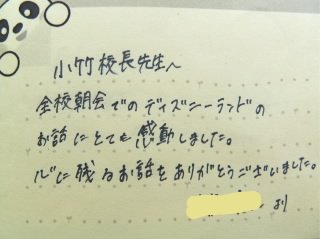 小竹校長先生へ
全校朝会でのディズニーランドの
お話にとても感動しました。
心に残るお話をありがとうございました。
より